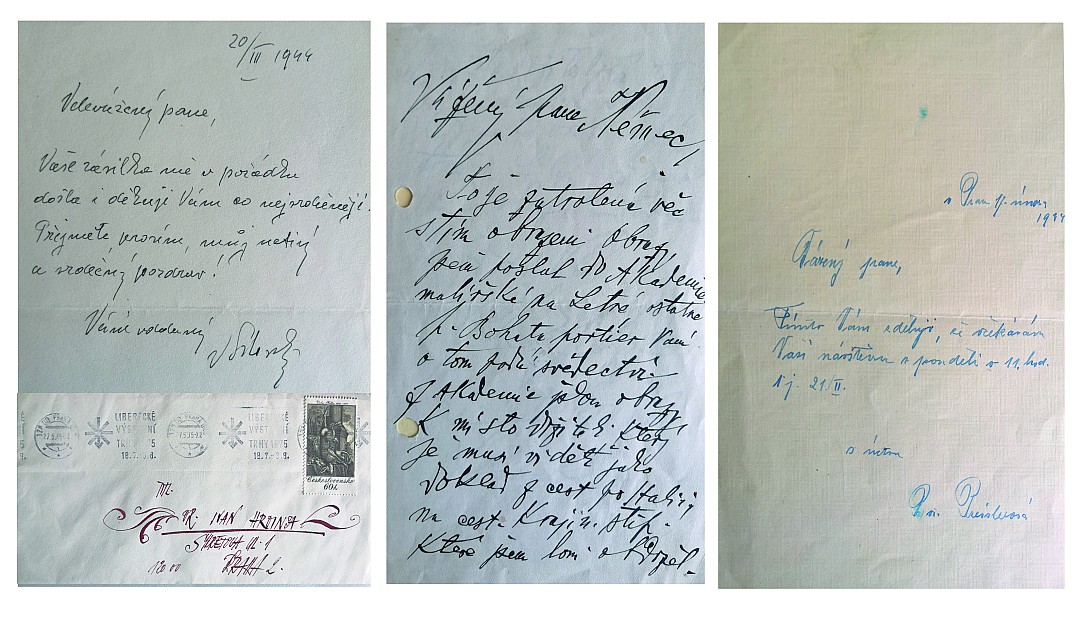 20/III 1944
Velevážený pane,
Vaše zásilka mě v pořádku
došla i děkuji Vám co nejsrdečněji.
Přijměte prosím, můj uctivý
a srdečný pozdrav!
Vám oddaný
LIBERECKÉ
VÝSTAVNÍ
TRHY 75
18.7.-3.8.
LIBERECKÉ
VÝSTAVNÍ
TRHY 75
18.7.-3.8.
Československo
60h
DR. IVAN
120 00 PRAHA 2.
Vážený pane Němec,
To je zatrolená věc
s tím obrazem. Obraz
jsem poslal do Akademie
malířské na Letné ostatně
p. Bohata portier Vám
o tom podá svědectví.
Z Akademie jdou obrazy
K místodržiteli který
je musí vidět jako
doklad z cest po Italii
na cest. Krajin. stip.
Které jsem loni
1944
Vážený pane,
Tímto Vám sděluji, že očekávám
Vaši návštěvu v pondělí v 11. hod.
t.j. 21/II.
S úctou